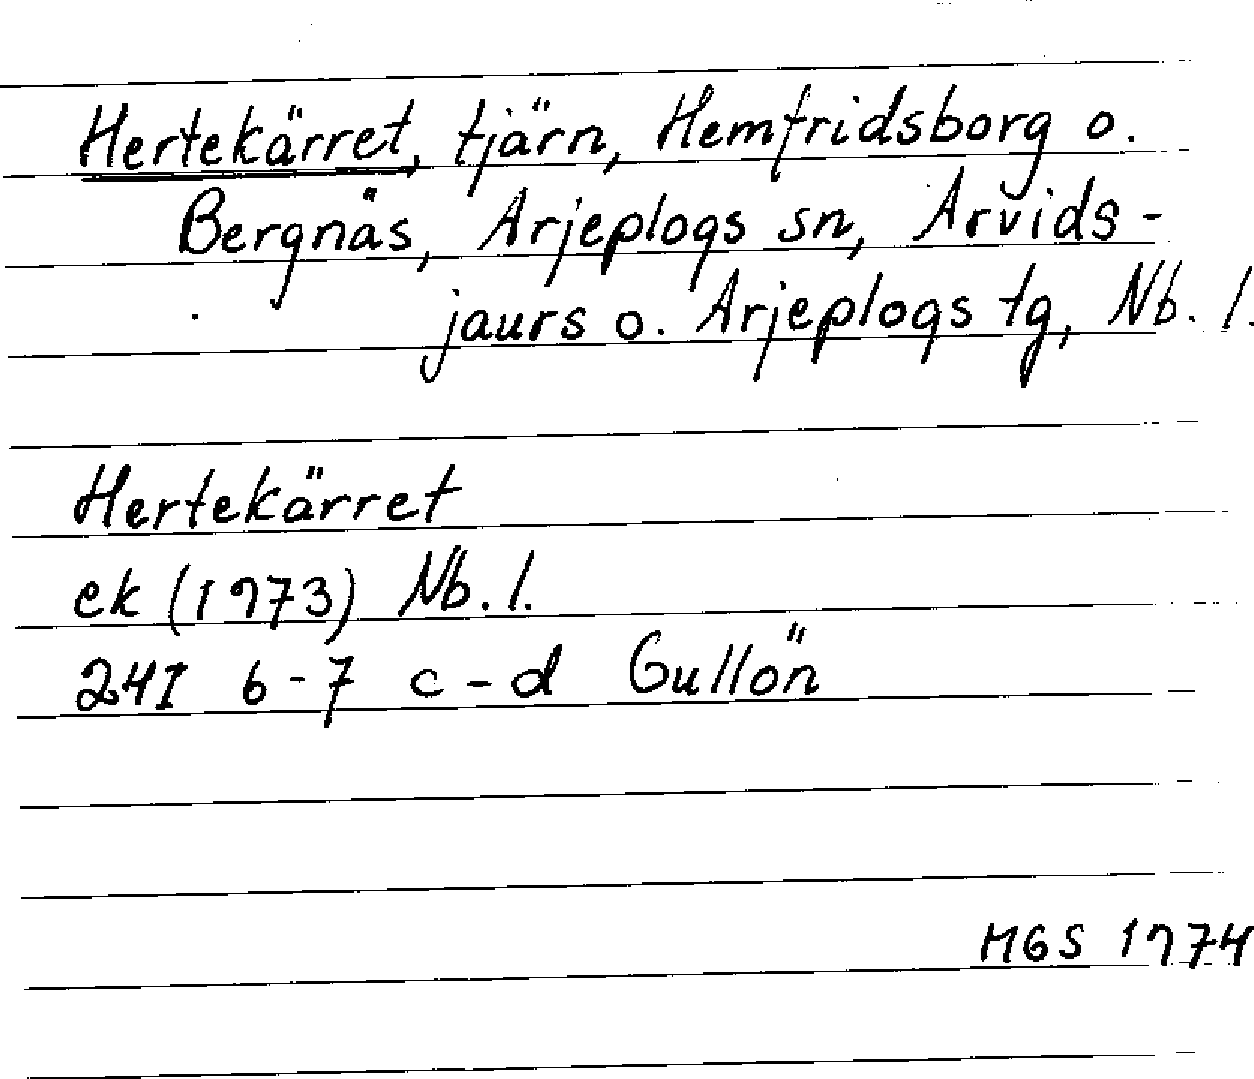 Hertekärret, tjärn, Hemfridsborg o.
Bergnäs, Arjeplogs sn, Arvids-
jaurs o. Arjeplogs tg, Nb. l.
Hertekärret
ek (1973) Nb. l.
24I 6-7 c-d Gullön
MGS 1974